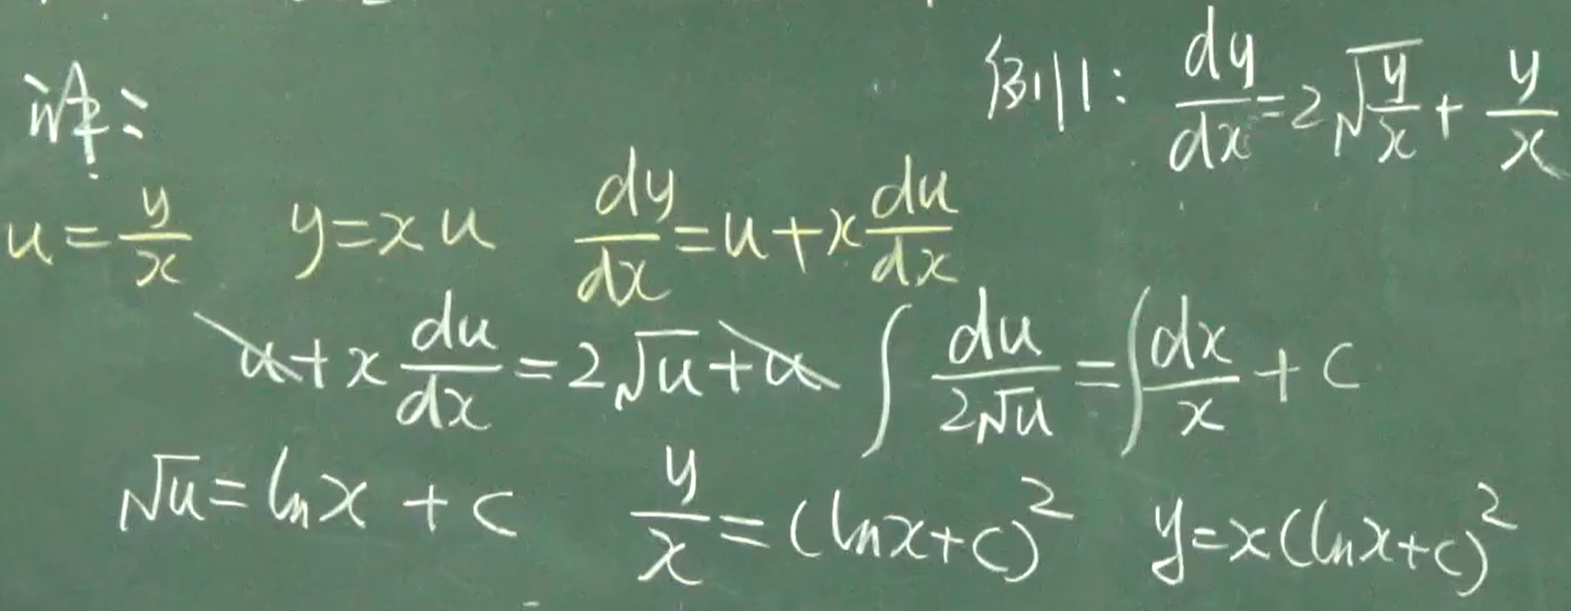 例1: dy/dx=2√(y/x)+y/x
解:
u=y/x y=xu dy/dx=u+x du/dx
u+x du/dx=2√u+u ∫du/(2√u)=∫dx/x+c
√u=lnx+c y/x=(lnx+c)² y=x(lnx+c)²